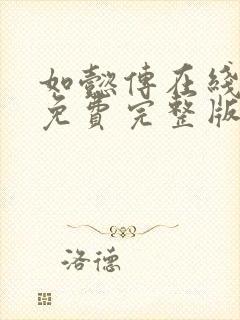 如懿傅在綫
免費完整版
洛德